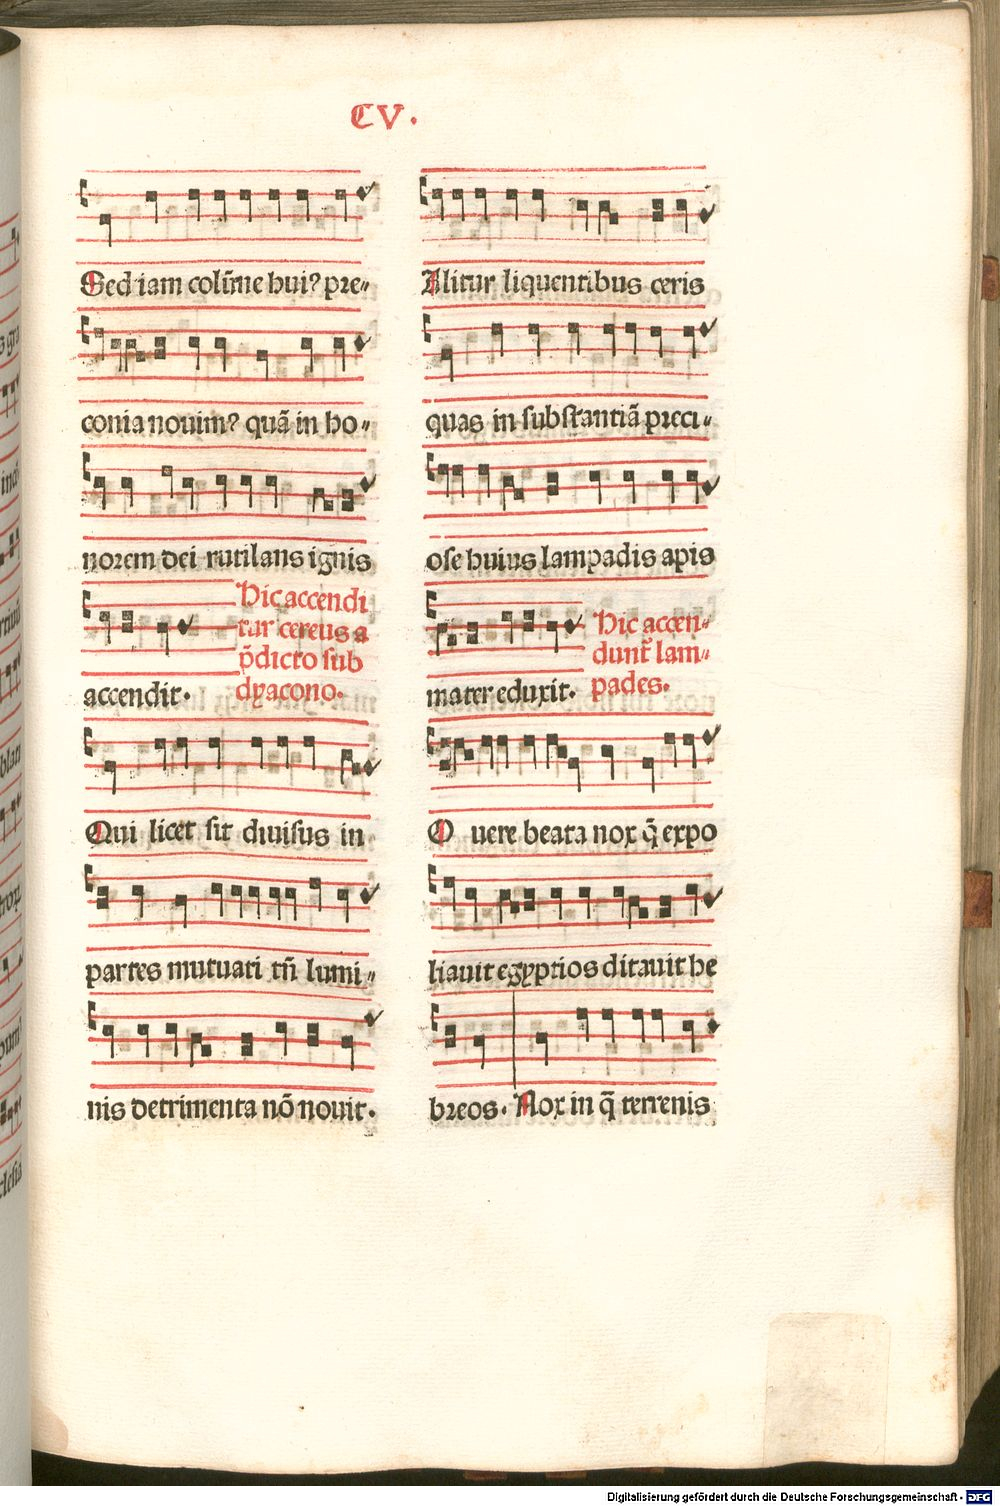 CV.
Sed iam colūne huiꝰ pre„
conia nouimꝰ quā in ho„
norem dei rutilans ignis
accendit.
Hic accendi
tur cereus a
p̄dicto sub
dyacono.
Qui licet sit diuisus in
partes mutuati tn̄ lumi„
nis detrimenta nō nouit.
Alitur liquentibus ceris
quas in substantiā preci„
ose huius lampadis apis
mater eduxit.
Hic accen„
dunt᷑ lam„
pades.
O uere beata nox q̄ expo
liauit egyptios ditauit he
breos. Nox in q̄ terrenis
Digitalisierung gefördert durch die Deutsche Forschungsgemeinschaft - DFG